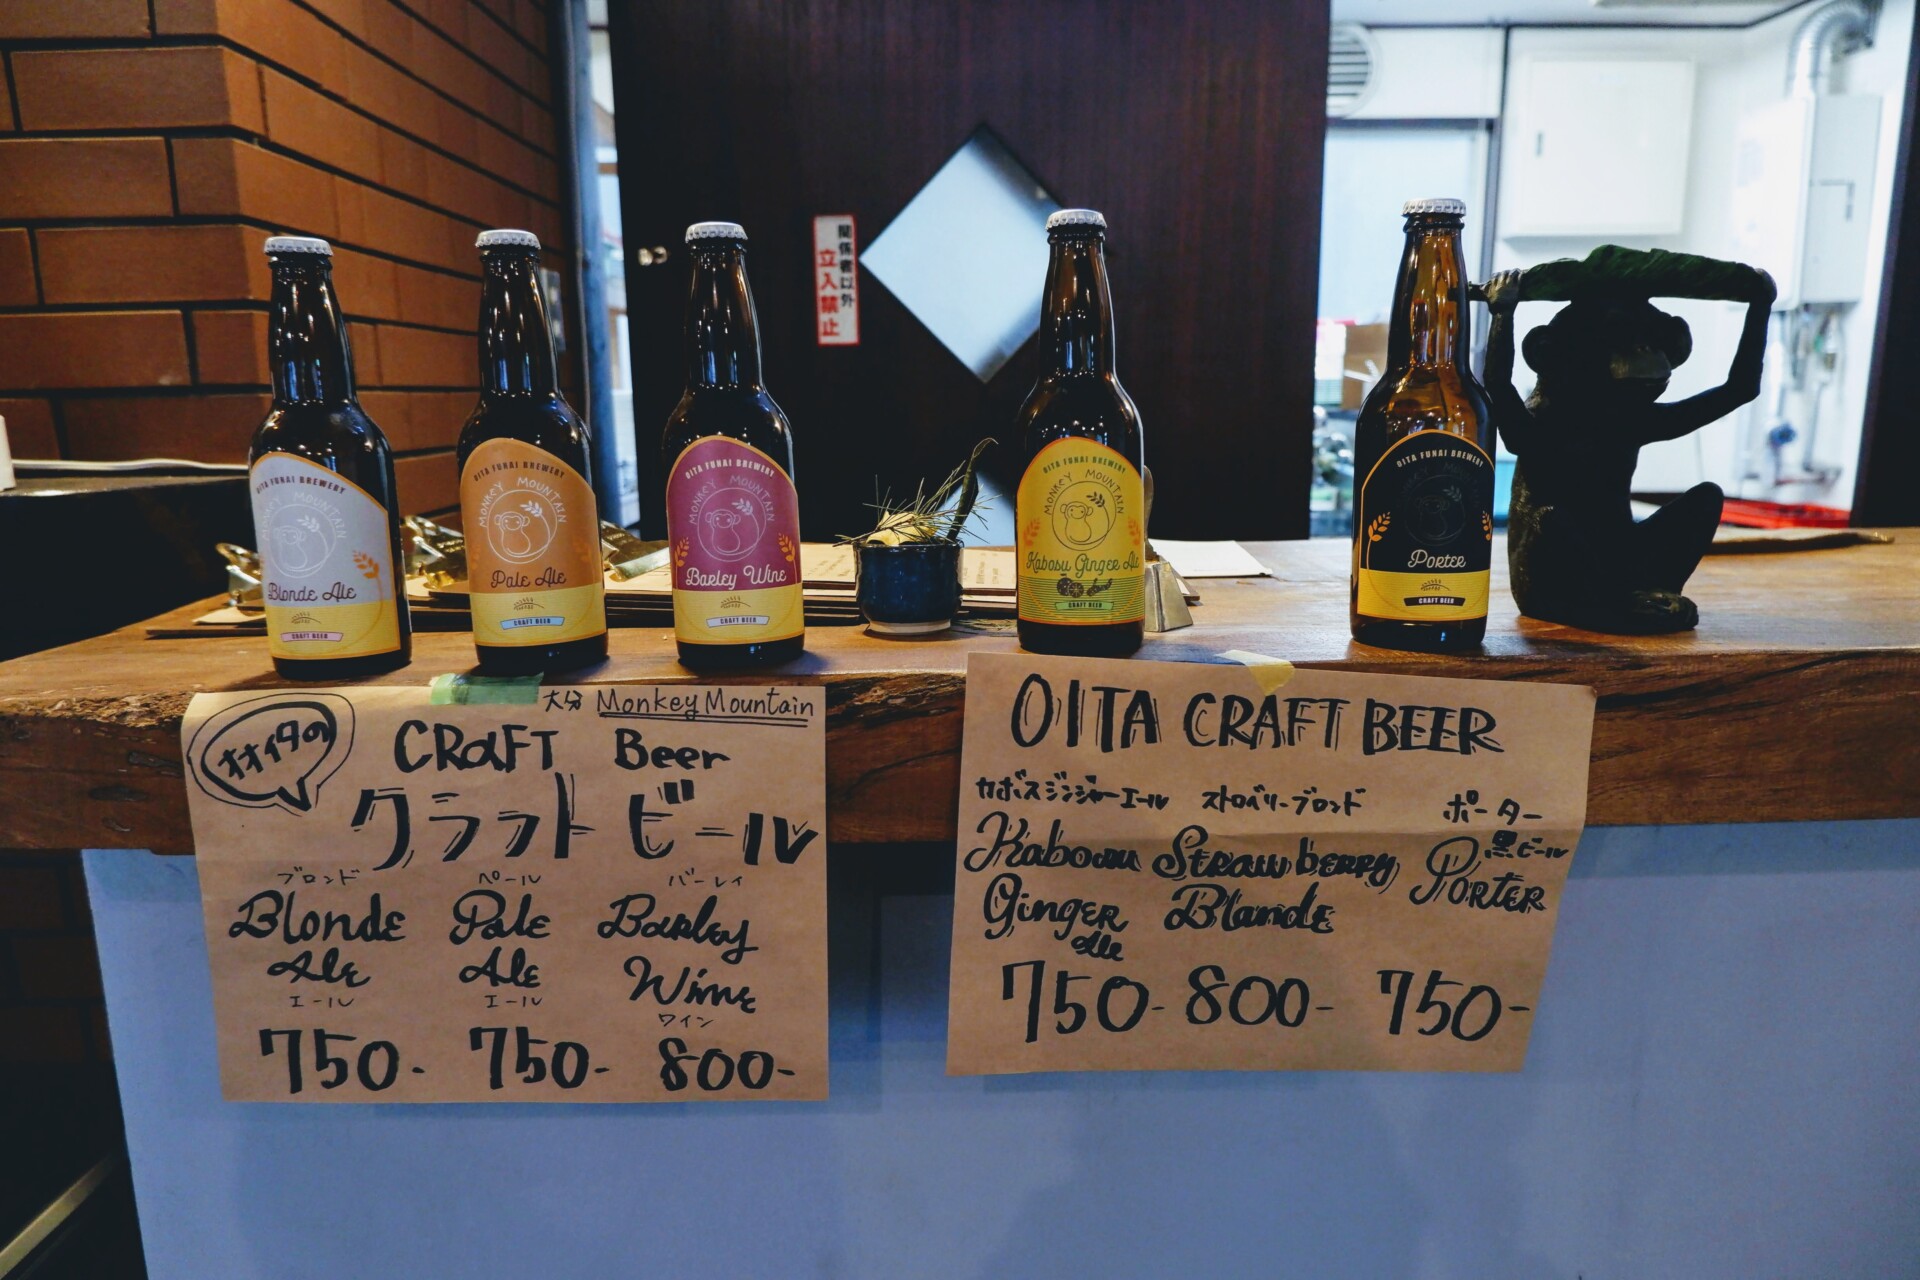 関係者以外
立入禁止
OITA FUNAI BREWERY
MONKEY MOUNTAIN
Blonde Ale
CRAFT BEER
OITA FUNAI BREWERY
MONKEY MOUNTAIN
Pale Ale
CRAFT BEER
OITA FUNAI BREWERY
MONKEY MOUNTAIN
Barley Wine
CRAFT BEER
OITA FUNAI BREWERY
MONKEY MOUNTAIN
Kabosu Ginger Ale
CRAFT BEER
OITA FUNAI BREWERY
Porter
CRAFT BEER
大分 Monkey Mountain
オオイタの
CRAFT Beer
クラフトビール
ブロンド ペール バーレイ
Blonde Pale Barley
Ale Ale Wine
エール エール ワイン
750- 750- 800-
OITA CRAFT BEER
カボスジンジャーエール ストロベリーブロンド ポーター
黒ビール
Kabosu Strawberry Porter
Ginger Blonde
Ale
750- 800- 750-